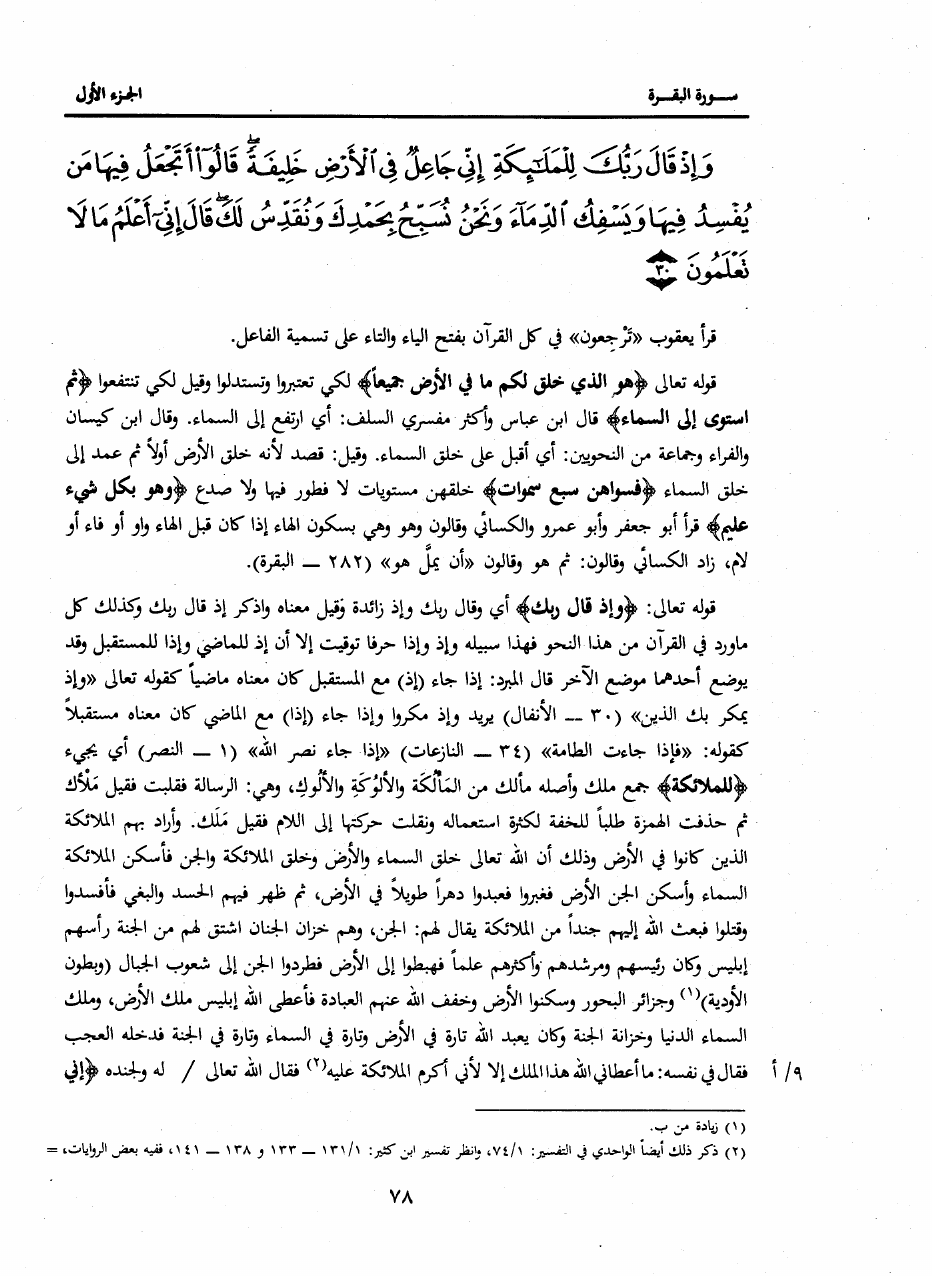 سـورة البقـرة
الجزء الأول
وَإِذْ قَالَ رَبُّكَ لِلْمَلَـٰٓئِكَةِ إِنِّي جَاعِلٌ فِي ٱلْأَرْضِ خَلِيفَةً ۖ قَالُوٓا۟ أَتَجْعَلُ فِيهَا مَن
يُفْسِدُ فِيهَا وَيَسْفِكُ ٱلدِّمَآءَ وَنَحْنُ نُسَبِّحُ بِحَمْدِكَ وَنُقَدِّسُ لَكَ ۖ قَالَ إِنِّيٓ أَعْلَمُ مَا لَا
تَعْلَمُونَ ﴿٣٠﴾
قرأ يعقوب «تَرْجِعون» في كل القرآن بفتح الياء والتاء على تسمية الفاعل.
قوله تعالى ﴿هو الذي خلق لكم ما في الأرض جميعاً﴾ لكي تعتبروا وتستدلوا وقيل لكي تنتفعوا ﴿ثم
استوى إلى السماء﴾ قال ابن عباس وأكثر مفسري السلف: أي ارتفع إلى السماء. وقال ابن كيسان
والفراء وجماعة من النحويين: أي أقبل على خلق السماء. وقيل: قصد لأنه خلق الأرض أولاً ثم عمد إلى
خلق السماء ﴿فسواهن سبع سموات﴾ خلقهن مستويات لا فطور فيها ولا صدع ﴿وهو بكل شيء
عليم﴾ قرأ أبو جعفر وأبو عمرو والكسائي وقالون وهو وهي بسكون الهاء إذا كان قبل الهاء واو أو فاء أو
لام، زاد الكسائي وقالون: ثم هو وقالون «أن يملَّ هو» (٢٨٢ — البقرة).
قوله تعالى: ﴿وإذ قال ربك﴾ أي وقال ربك وإذ زائدة وقيل معناه واذكر إذ قال ربك وكذلك كل
ماورد في القرآن من هذا النحو فهذا سبيله وإذ وإذا حرفا توقيت إلا أن إذ للماضي وإذا للمستقبل وقد
يوضع أحدهما موضع الآخر قال المبرد: إذا جاء (إذ) مع المستقبل كان معناه ماضياً كقوله تعالى «وإذ
يمكر بك الذين» (٣٠ — الأنفال) يريد وإذ مكروا وإذا جاء (إذا) مع الماضي كان معناه مستقبلاً
كقوله: «فإذا جاءت الطامة» (٣٤ — النازعات) «إذا جاء نصر الله» (١ — النصر) أي يجيء
﴿للملائكة﴾ جمع ملك وأصله مألك من المَأْلُكَة والأَلُوكَةِ والأَلُوكِ، وهي: الرسالة فقلبت فقيل مَلْأَك
ثم حذفت الهمزة طلباً للخفة لكثرة استعماله ونقلت حركتها إلى اللام فقيل مَلَك. وأراد بهم الملائكة
الذين كانوا في الأرض وذلك أن الله تعالى خلق السماء والأرض وخلق الملائكة والجن فأسكن الملائكة
السماء وأسكن الجن الأرض فغبروا فعبدوا دهراً طويلاً في الأرض، ثم ظهر فيهم الحسد والبغي فأفسدوا
وقتلوا فبعث الله إليهم جنداً من الملائكة يقال لهم: الجن، وهم خزان الجنان اشتق لهم من الجنة رأسهم
إبليس وكان رئيسهم ومرشدهم وأكثرهم علماً فهبطوا إلى الأرض فطردوا الجن إلى شعوب الجبال (وبطون
الأودية)(١) وجزائر البحور وسكنوا الأرض وخفف الله عنهم العبادة فأعطى الله إبليس ملك الأرض، وملك
السماء الدنيا وخزانة الجنة وكان يعبد الله تارة في الأرض وتارة في السماء وتارة في الجنة فدخله العجب
٩/أ فقال في نفسه: ما أعطاني الله هذا الملك إلا لأني أكرم الملائكة عليه(٢) فقال الله تعالى / له ولجنده ﴿إني
(١) زيادة من ب.
(٢) ذكر ذلك أيضاً الواحدي في التفسير: ٧٤/١، وانظر تفسير ابن كثير: ١٣١/١ — ١٣٣ و ١٣٨ — ١٤١، ففيه بعض الروايات، =
٧٨